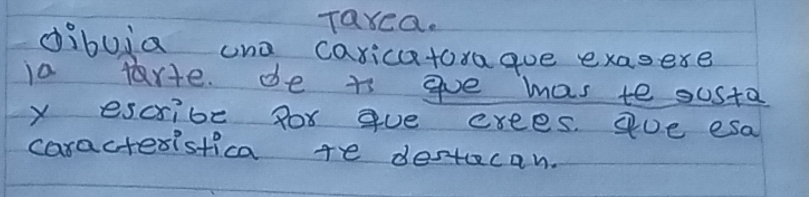 Tarea.
dibuja una caricatora que exagere
la parte. de ti que mas te gusta
y escribe por que crees. que esa
caracteristica te destacan.